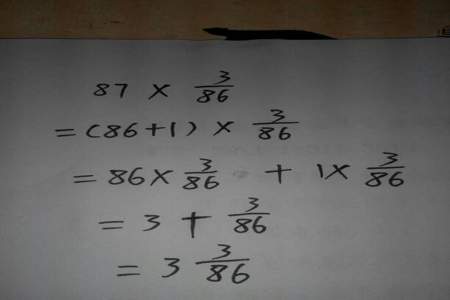 87 × 3/86
= (86+1) × 3/86
= 86 × 3/86 + 1 × 3/86
= 3 + 3/86
= 3 3/86